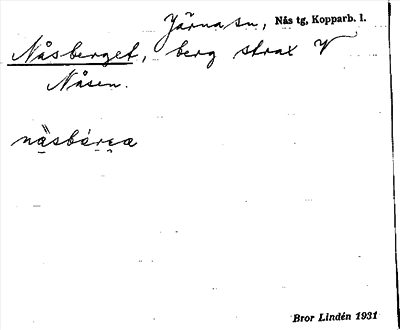 Järna sn, Nås tg, Kopparb. l.
Nåsberget, berg strax V
Nåsen.
Bror Lindén 1931